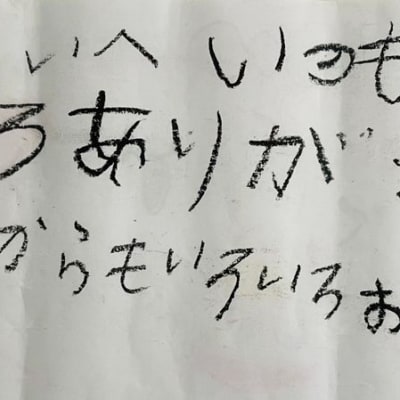 いへ いつも
ろ ありが
からもいろいろ お